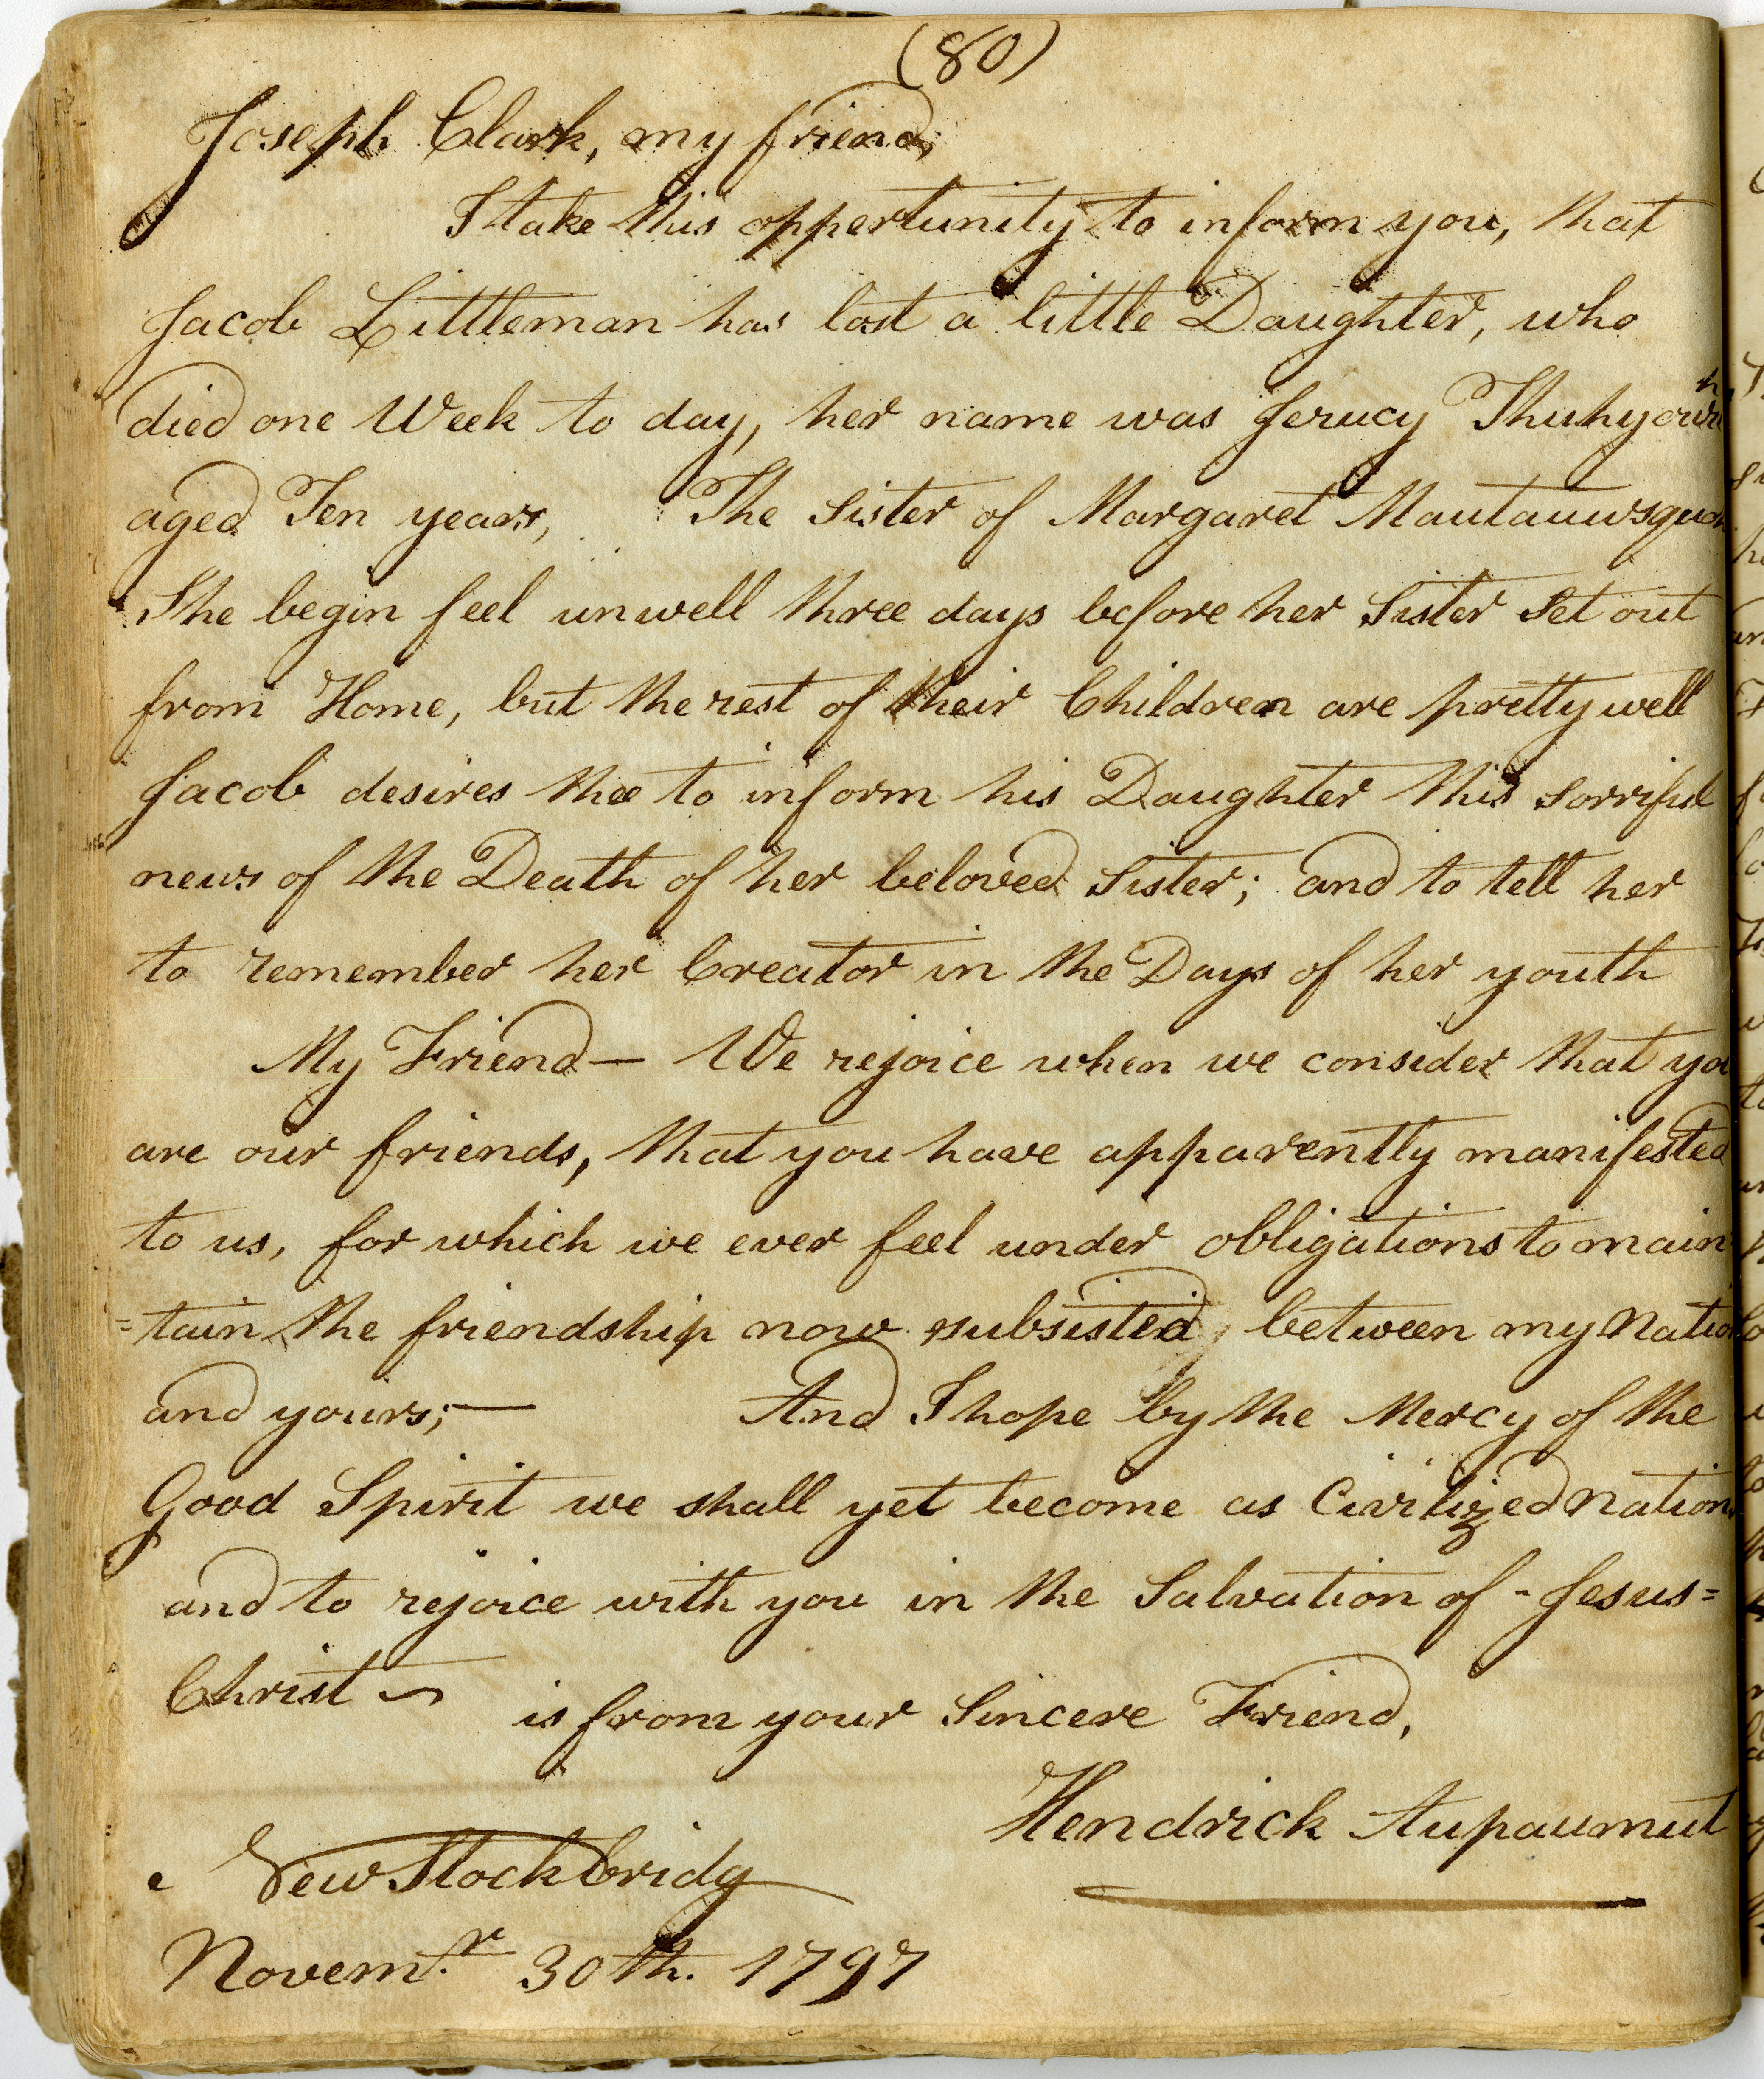 (80)
Joseph Clark, my friend,
I take this oppertunity to inform you, that
Jacob Littleman has lost a little Daughter, who
died one Week to day, her name was Jerucy
aged Ten years, The Sister of Margaret
She begin feel unwell three days before her Sister Set out
from Home, but the rest of their Children are pretty well
Jacob desires thee to inform his Daughter this sorriful
news of the Death of her beloved Sister; and to tell her
to remember her Creator in the Days of her youth
My Friend — We rejoice when we consider that yo
are our friends, that you have apparently manifested
to us, for which we ever feel under obligations to main
=tain the friendship now subsisted, between my Natio
and yours; — And I hope by the Mercy of the
Good Spirit we shall yet become as Civilized Nation
and to rejoice with you in the Salvation of - Jesus =
Christ ~
is from your Sincere Friend,
Hendrick Aupaumut
New Stockbridg
Novem.r 30th. 1797